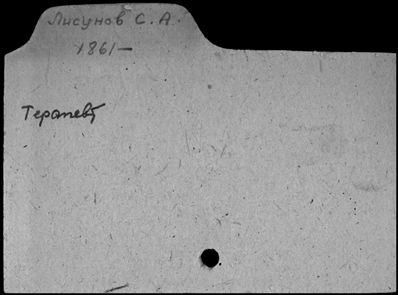 Лисунов С. А.
1861—
Терапевт